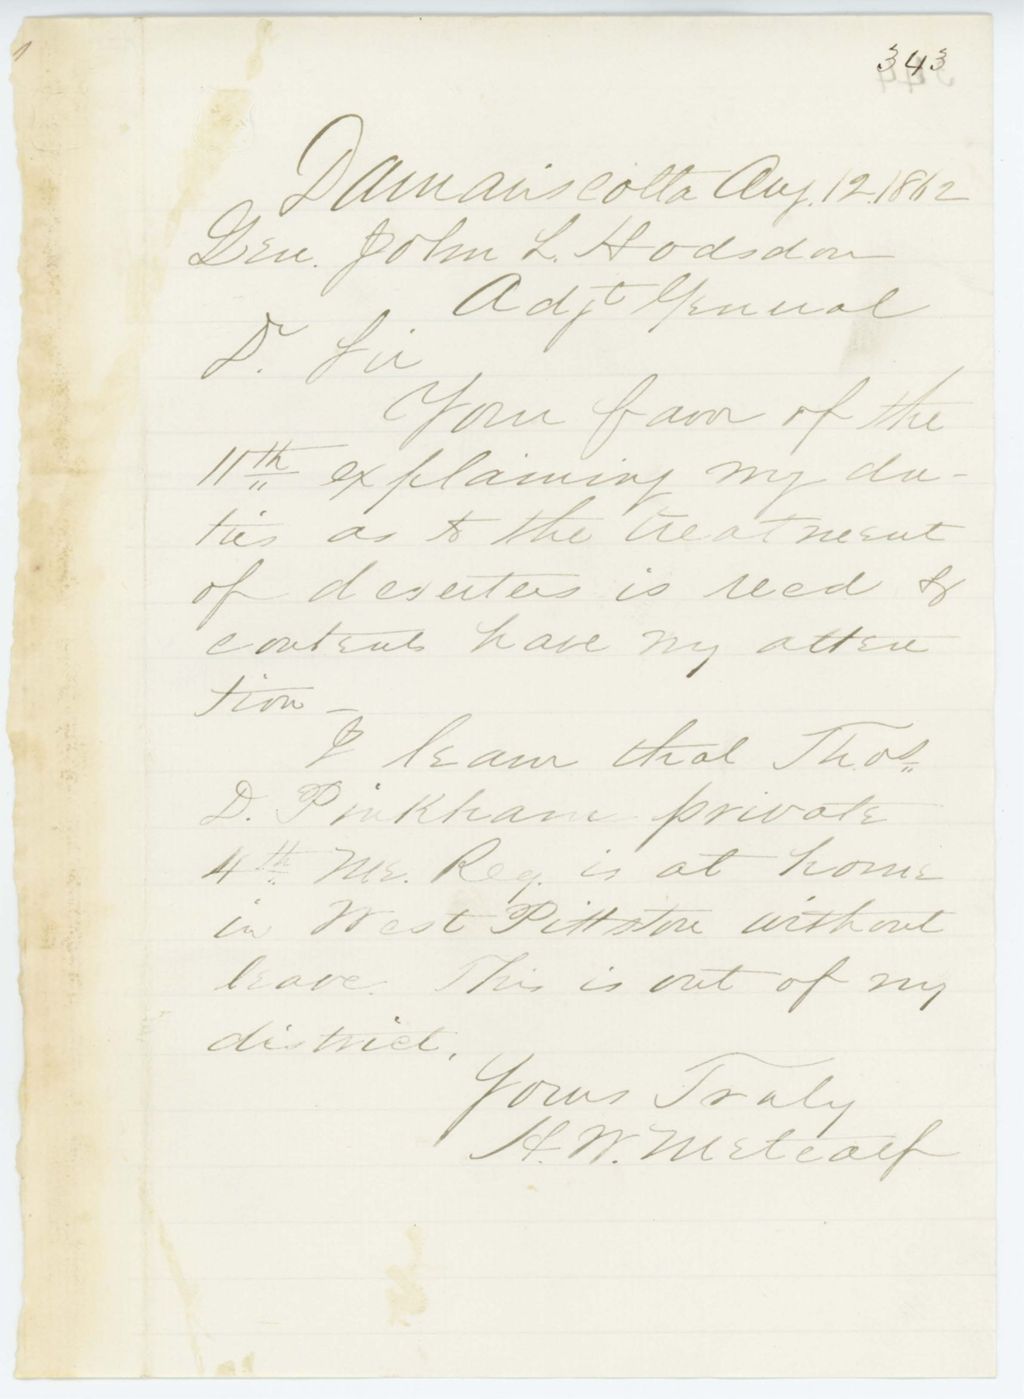 343
Damariscotta Aug. 12. 1862
Gen. John L. Hodsdon
Adjt General
Dr. Sir
Your favor of the
11th explaining my du-
ties as to the treatment
of deserters is recd &
contents have my atten
tion -
I learn that Thos
D. Pinkham private
4th Me. Reg. is at home
in West Pittston without
leave. This is out of my
district.
Yours Truly
H. W. Metcalf